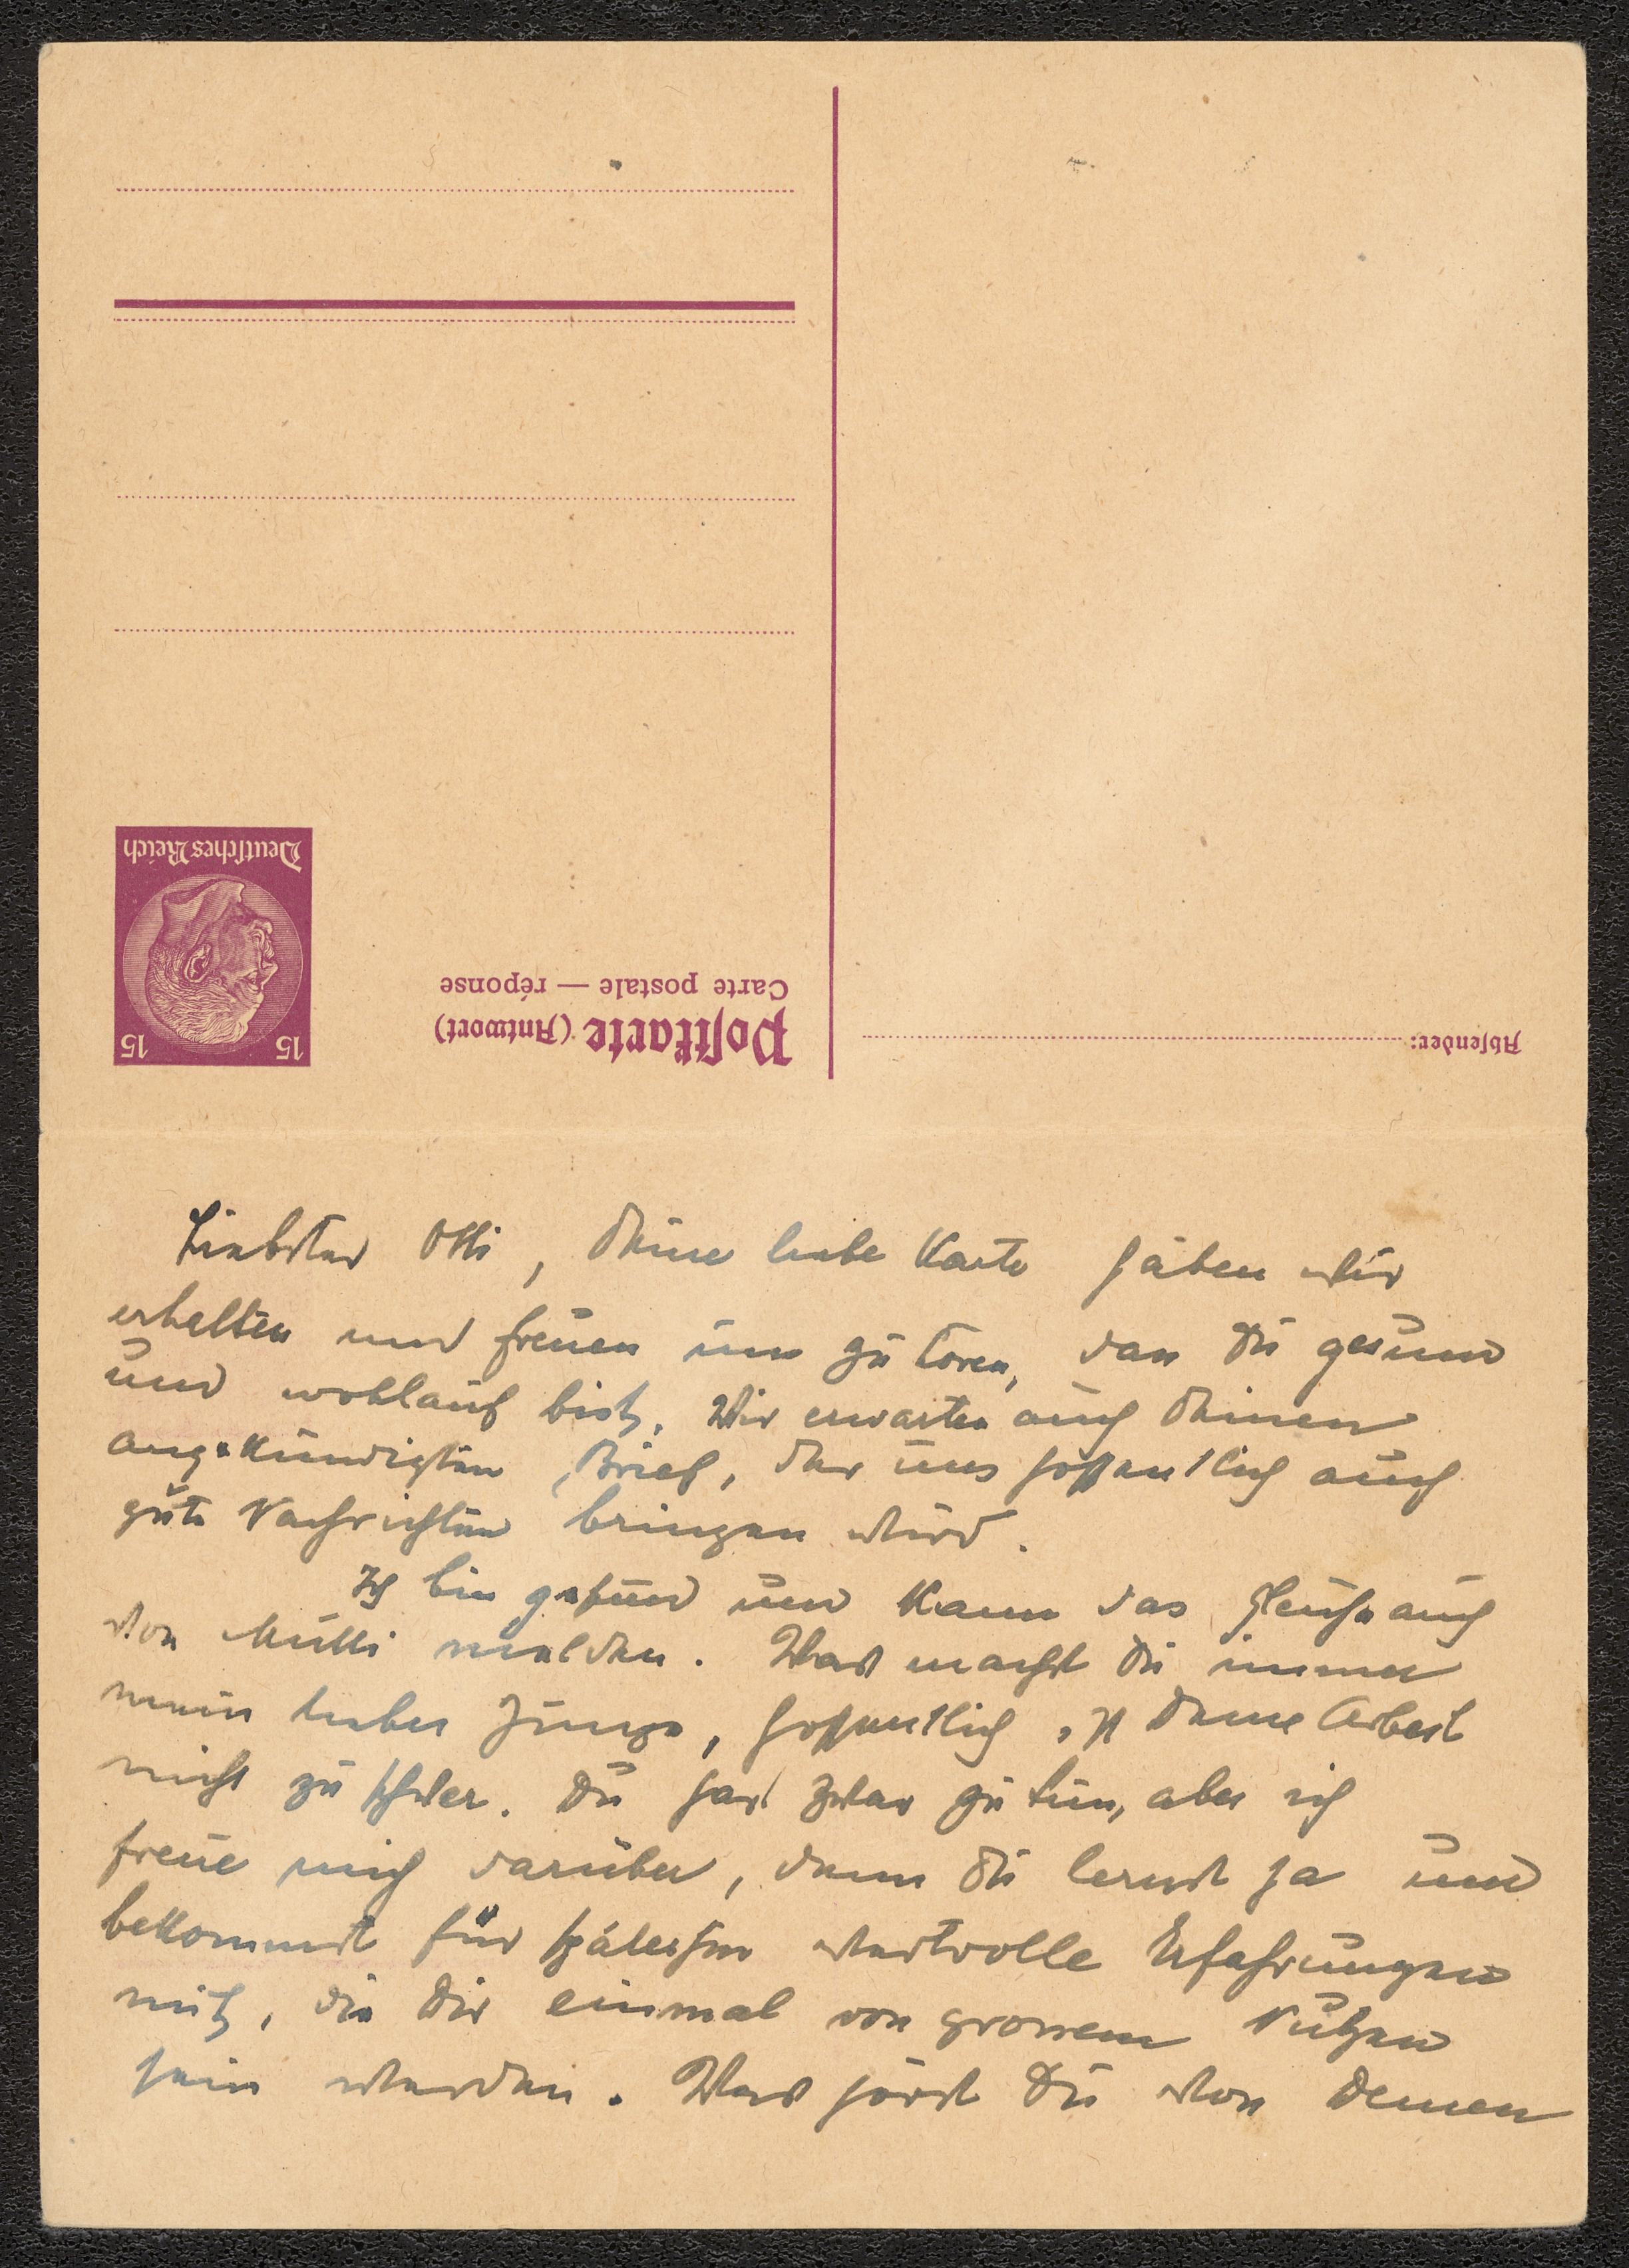 Deutsches Reich
15 15
Postkarte (Antwort)
Carte postale — réponse
Absender:
Liebster Otti, Deine liebe Karte haben wir
erhalten und freuen uns zu hören, dass Du gesund
und wohlauf bist. Wir erwarten auch Deinen
angekündigten Brief, der uns hoffentlich auch
gute Nachrichten bringen wird.
Ich bin gesund und kann das Gleiche auch
von Mutti melden. Was machst Du immer
mein lieber Junge, hoffentlich ist Deine Arbeit
nicht zu schwer. Du hast zwar zu tun, aber ich
freue mich darüber, denn Du lernst ja und
bekommst für späterhin wertvolle Erfahrungen
mit, die Dir einmal von grossem Nutzen
sein werden. Was hörst Du von Deinen